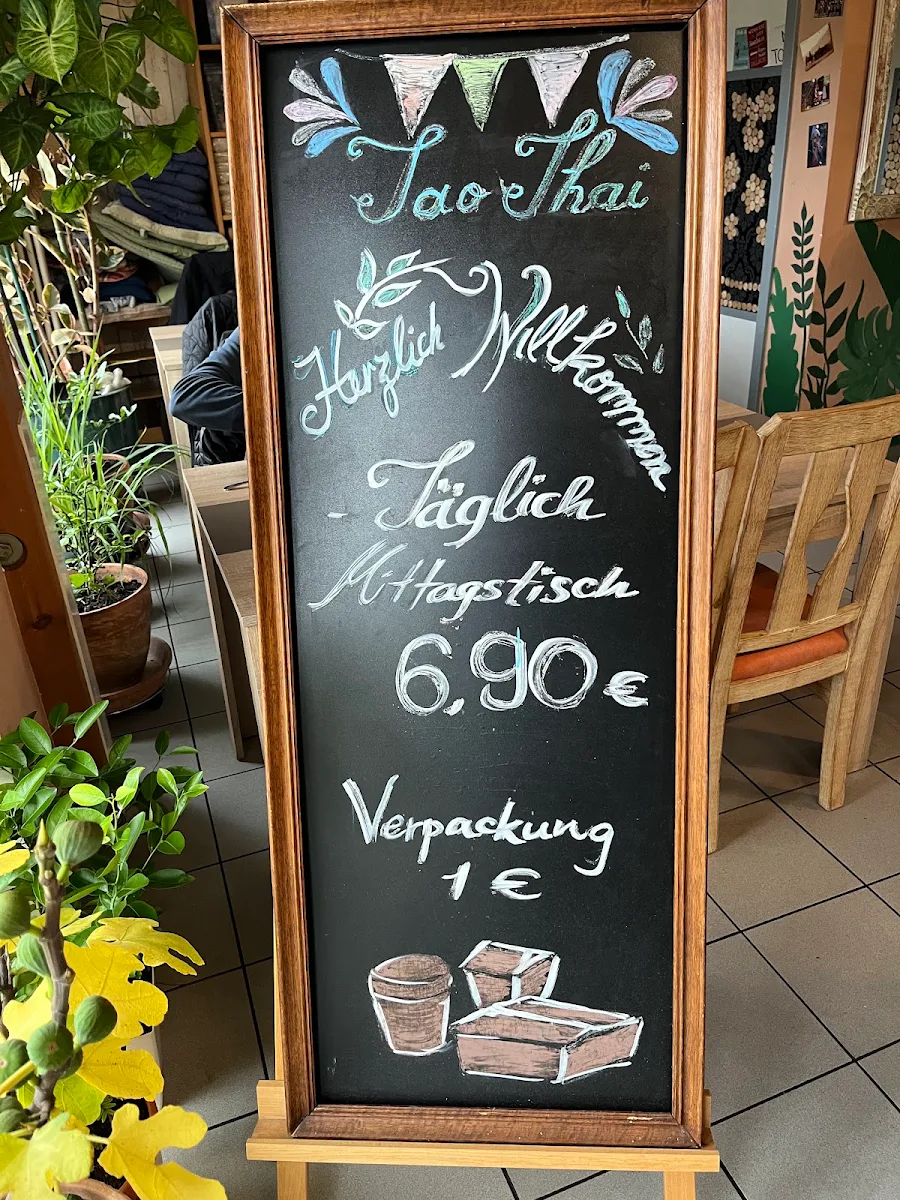 Tao Thai
Herzlich Willkommen
Täglich
Mittagstisch
6,90 €
Verpackung
1 €